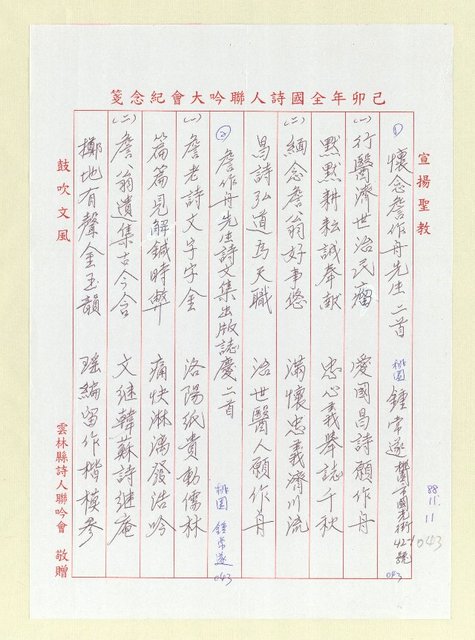 己卯年全國詩人聯吟大會紀念箋
宣揚聖教
88.11.11
① 懷念詹作舟先生二首 桃園 鍾常遂
043
043
(一) 行醫濟世治民瘤 愛國昌詩願作舟
默默耕耘誠奉獻 忠心義舉誌千秋
(二) 緬念詹翁好事悠 滿懷忠義濟川流
昌詩弘道為天職 治世醫人願作舟
② 詹作舟先生詩文集出版誌慶二首 桃園 鍾常遂
043
(一) 詹老詩文字字金 洛陽紙貴動儒林
篇篇見解鍼時弊 痛快淋漓發浩吟
(二) 詹翁遺集古今含 文继韓蘇詩继庵
擲地有聲金玉韻 瑶編留作楷模參
鼓吹文風
雲林縣詩人聯吟會 敬贈